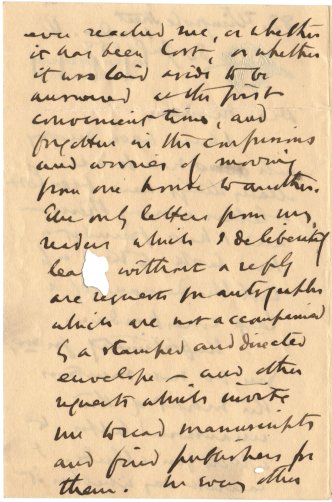 ever reached me, or whether
it has been lost, or whether
it was laid aside to be
answered at the first
convenient time, and
forgotten in the confusions
and worries of moving
from one house to another.
The only letters from my
readers which I deliberately
lea without a reply
are requests for autographs
which are not accompanied
by a stamped and directed
envelope – and other
requests which invite
me to read manuscripts
and find publishers for
them. In every other